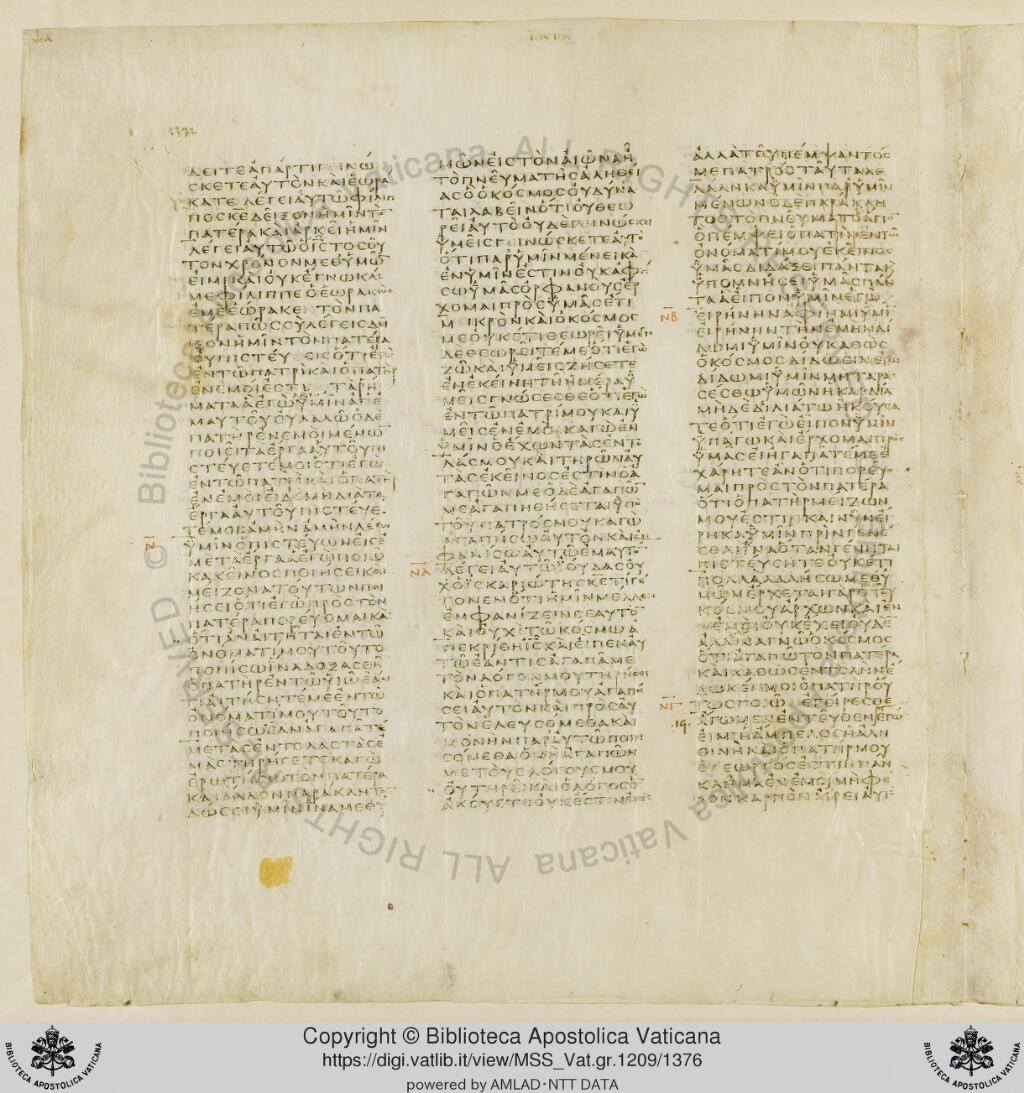 1372
ΔΕΙΤΕΑΠΑΡΤΙΓΕΙΝΩ
ϹΚΕΤΕΑΥΤΟΝΚΑΙΕΩΡΑ
ΚΑΤΕΛΕΓΕΙΑΥΤΩΦΙΛΙΠ
ΠΟϹΚΕΔΕΙΞΟΝΗΜΙΝΤΟ̅
ΠΑΤΕΡΑΚΑΙΑΡΚΕΙΗΜΙΝ
ΛΕΓΕΙΑΥΤΩΟΙϹΤΟϹΟΥ
ΤΟΝΧΡΟΝΟΝΜΕΘΥΜΩ̅
ΕΙΜΙΚΑΙΟΥΚΕΓΝΩΚΑϹ
ΜΕΦΙΛΙΠΠΕΟΕΩΡΑΚΩϹ
ΕΜΕΕΩΡΑΚΕΤΟΝΠΑ
ΤΕΡΑΠΩϹϹΥΛΕΓΕΙϹΔΕΙ
ΞΟΝΗΜΙΝΤΟΝΠΑΤΕΡΑ
ΟΥΠΙϹΤΕΥΕΙϹΟΤΙΕΓΩ
ΕΝΤΩΠΑΤΡΙΚΑΙΟΠΑΤΗΡ
ΕΝΕΜΟΙΕϹΤΙΤΑΡΗ
ΜΑΤΑΑΕΓΩΥΜΙΝΑΠΕ
ΜΑΥΤΟΥΟΥΛΑΛΩΟΔΕ
ΠΑΤΗΡΕΝΕΜΟΙΜΕΝΩ̅
ΠΟΙΕΙΤΑΕΡΓΑΑΥΤΟΥΠΙ
ϹΤΕΥΕΤΕΜΟΙΟΤΙΕΓΩ
ΕΝΤΩΠΑΤΡΙΚΑΙΟΠΑΤΗΡ
ΕΝΕΜΟΙΕΙΔΕΜΗΔΙΑΤΑ
ΕΡΓΑΑΥΤΟΥΠΙϹΤΕΥΕ
ΤΕΜΟΙΑΜΗΝΑΜΗΝΛΕΓΩ
Ν̅
ΥΜΙΝΟΠΙϹΤΕΥΩΝΕΙϹΕ
ΜΕΤΑΕΡΓΑΑΕΓΩΠΟΙΩ
ΚΑΚΕΙΝΟϹΠΟΙΗϹΕΙΚΑΙ
ΜΕΙΖΟΝΑΤΟΥΤΩΝΠΟΙ
ΗϹΕΙΟΤΙΕΓΩΠΡΟϹΤΟΝ
ΠΑΤΕΡΑΠΟΡΕΥΟΜΑΙΚΑΙ
ΟΤΙΑΝΑΙΤΗΤΑΙΕΝΤΩ
ΟΝΟΜΑΤΙΜΟΥΤΟΥΤΟ
ΠΟΙΗϹΩΙΝΑΔΟΞΑϹΘΗ
ΟΠΑΤΗΡΕΝΤΩΥΙΩΕΑΝ
ΤΙΑΙΤΗϹΗΤΕΜΕΕΝΤΩ
ΟΝΟΜΑΤΙΜΟΥΤΟΥΤΟ
ΠΟΙΗϹΩΕΑΝΑΓΑΠΑΤΕ
ΜΕΤΑϹΕΝΤΟΛΑϹΤΑϹΕ
ΜΑϹΤΗΡΗϹΕΤΕΚΑΓΩ
ΕΡΩΤΗϹΩΤΟΝΠΑΤΕΡΑ
ΚΑΙΑΛΛΟΝΠΑΡΑΚΛΗΤΟ̅
ΔΩϹΕΙΥΜΙΝΙΝΑΜΕΘΥ
ΜΩΝΕΙϹΤΟΝΑΙΩΝΑΗ
ΤΟΠΝΕΥΜΑΤΗϹΑΛΗΘΕΙ
ΑϹΟΟΚΟϹΜΟϹΟΥΔΥΝΑ
ΤΑΙΛΑΒΕΙΝΟΤΙΟΥΘΕΩ
ΡΕΙΑΥΤΟΟΥΔΕΓΕΙΝΩϹΚΕΙ
ΥΜΕΙϹΓΕΙΝΩϹΚΕΤΕΑΥΤΟ
ΟΤΙΠΑΡΥΜΙΝΜΕΝΕΙΚΑΙ
ΕΝΥΜΙΝΕϹΤΙΝΟΥΚΑΦΗ
ϹΩΥΜΑϹΟΡΦΑΝΟΥϹΕΡ
ΧΟΜΑΙΠΡΟϹΥΜΑϹΕΤΙ
ΜΙΚΡΟΝΚΑΙΟΚΟϹΜΟϹ
ΜΕΟΥΚΕΤΙΘΕΩΡΕΙΥΜΕΙϹ
ΔΕΘΕΩΡΕΙΤΕΜΕΟΤΙΕΓΩ
ΖΩΚΑΙΥΜΕΙϹΖΗϹΕΤΕ
ΕΝΕΚΕΙΝΗΤΗΗΜΕΡΑΥ
ΜΕΙϹΓΝΩϹΕϹΘΕΟΤΙΕΓΩ
ΕΝΤΩΠΑΤΡΙΜΟΥΚΑΙΥ
ΜΕΙϹΕΝΕΜΟΙΚΑΓΩΕΝ
ΥΜΙΝΟΕΧΩΝΤΑϹΕΝΤΟ
ΛΑϹΜΟΥΚΑΙΤΗΡΩΝΑΥ
ΤΑϹΕΚΕΙΝΟϹΕϹΤΙΝΟΑ
ΓΑΠΩΝΜΕΟΔΕΑΓΑΠΩ̅
ΜΕΑΓΑΠΗΘΗϹΕΤΑΙΥΠΟ
ΤΟΥΠΑΤΡΟϹΜΟΥΚΑΓΩ
ΑΓΑΠΗϹΩΑΥΤΟΝΚΑΙΕΜ
ΦΑΝΙϹΩΑΥΤΩΕΜΑΥΤΟ̅
ΝΑ̅
ΛΕΓΕΙΑΥΤΩΙΟΥΔΑϹΟΥ
ΧΟΙϹΚΑΡΙΩΤΗϹΚΕΤΙΓΕ
ΓΟΝΕΝΟΤΙΗΜΙΝΜΕΛΛΕΙϹ
ΕΜΦΑΝΙΖΕΙΝϹΕΑΥΤΟ̅
ΚΑΙΟΥΧΙΤΩΚΟϹΜΩΑ
ΠΕΚΡΙΘΗΙϹΚΑΙΕΙΠΕΝΑΥ
ΤΩΕΑΝΤΙϹΑΓΑΠΑΜΕ
ΤΟΝΛΟΓΟΝΜΟΥΤΗΡΗϹΕΙ
ΚΑΙΟΠΑΤΗΡΜΟΥΑΓΑΠΗ
ϹΕΙΑΥΤΟΝΚΑΙΠΡΟϹΑΥ
ΤΟΝΕΛΕΥϹΟΜΕΘΑΚΑΙ
ΜΟΝΗΝΠΑΡΑΥΤΩΠΟΙΗ
ϹΟΜΕΘΑΟΜΗΑΓΑΠΩΝ
ΜΕΤΟΥϹΛΟΓΟΥϹΜΟΥ
ΟΥΤΗΡΕΙΚΑΙΟΛΟΓΟϹΟ̅
ΑΚΟΥΕΤΕΟΥΚΕϹΤΙΝΕΜΟϹ
ΑΛΛΑΤΟΥΠΕΜΨΑΝΤΟϹ
ΜΕΠΑΤΡΟϹΤΑΥΤΑΛΕ
ΛΑΛΗΚΑΥΜΙΝΠΑΡΥΜΙΝ
ΜΕΝΩΝΟΔΕΠΑΡΑΚΛΗ
ΤΟϹΤΟΠΝΕΥΜΑΤΟΑΓΙΟ̅
ΟΠΕΜΨΕΙΟΠΑΤΗΡΕΝΤΩ
ΟΝΟΜΑΤΙΜΟΥΕΚΕΙΝΟϹ
ΥΜΑϹΔΙΔΑΞΕΙΠΑΝΤΑΚΑΙ
ΥΠΟΜΝΗϹΕΙΥΜΑϹΠΑΝ
ΤΑΑΕΙΠΟΝΥΜΙΝΕΓΩ
ΝΒ̅
ΕΙΡΗΝΗΝΑΦΙΗΜΙΥΜΙ̅
ΕΙΡΗΝΗΝΤΗΝΕΜΗΝΔΙ
ΔΩΜΙΥΜΙΝΟΥΚΑΘΩϹ
ΟΚΟϹΜΟϹΔΙΔΩϹΙΝΕΓΩ
ΔΙΔΩΜΙΥΜΙΝΜΗΤΑΡΑϹ
ϹΕϹΘΩΥΜΩΝΗΚΑΡΔΙΑ
ΜΗΔΕΔΙΛΙΑΤΩΗΚΟΥϹΑ
ΤΕΟΤΙΕΓΩΕΙΠΟΝΥΜΙΝ
ΥΠΑΓΩΚΑΙΕΡΧΟΜΑΙΠΡΟϹ
ΥΜΑϹΕΙΗΓΑΠΑΤΕΜΕΕ
ΧΑΡΗΤΕΑΝΟΤΙΠΟΡΕΥΟ
ΜΑΙΠΡΟϹΤΟΝΠΑΤΕΡΑ
ΟΤΙΟΠΑΤΗΡΜΕΙΖΩΝ
ΜΟΥΕϹΤΙΝΚΑΙΝΥΝΕΙ
ΡΗΚΑΥΜΙΝΠΡΙΝΓΕΝΕ
ϹΘΑΙΙΝΑΟΤΑΝΓΕΝΗΤΑΙ
ΠΙϹΤΕΥϹΗΤΕΟΥΚΕΤΙ
ΠΟΛΛΑΛΑΛΗϹΩΜΕΘΥ
ΜΩΝΕΡΧΕΤΑΙΓΑΡΟΤΟΥ
ΚΟϹΜΟΥΑΡΧΩΝΚΑΙΕΝ
ΕΜΟΙΟΥΚΕΧΕΙΟΥΔΕ̅
ΑΛΛΙΝΑΓΝΩΟΚΟϹΜΟϹ
ΟΤΙΑΓΑΠΩΤΟΝΠΑΤΕΡΑ
ΚΑΙΚΑΘΩϹΕΝΤΟΛΗΝΕ
ΔΩΚΕΝΜΟΙΟΠΑΤΗΡΟΥ
ΝΓ̅
ΤΩϹΠΟΙΩΕΓΕΙΡΕϹΘΕ
ΑΓΩΜΕΝΕΝΤΕΥΘΕΝΕΓΩ
ΕΙΜΙΗΑΜΠΕΛΟϹΗΑΛΗ
ΘΙΝΗΚΑΙΟΠΑΤΗΡΜΟΥ
ΟΓΕΩΡΓΟϹΕϹΤΙΝΠΑΝ
ΚΛΗΜΑΕΝΕΜΟΙΜΗΦΕ
ΡΟΝΚΑΡΠΟΝΑΙΡΕΙΑΥΤΟ
Copyright © Biblioteca Apostolica Vaticana
https://digi.vatlib.it/view/MSS_Vat.gr.1209/1376
powered by AMLAD·NTT DATA